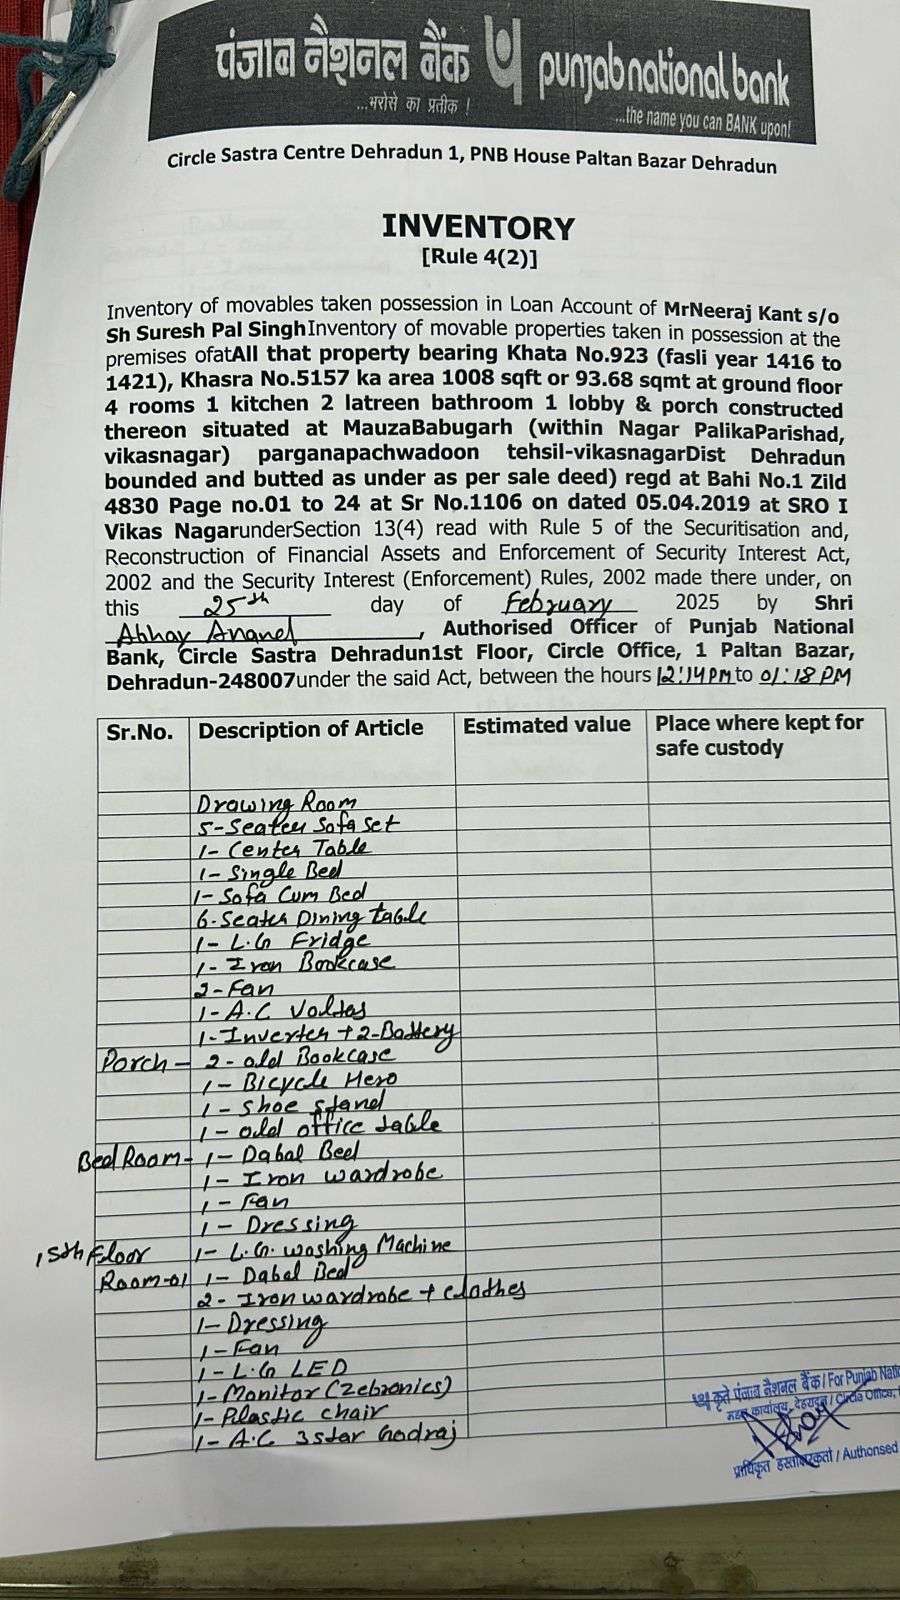 पंजाब नैशनल बैंक punjab national bank
...भरोसे का प्रतीक ! ...the name you can BANK upon!
Circle Sastra Centre Dehradun 1, PNB House Paltan Bazar Dehradun
INVENTORY
[Rule 4(2)]
Inventory of movables taken possession in Loan Account of MrNeeraj Kant s/o
Sh Suresh Pal SinghInventory of movable properties taken in possession at the
premises ofatAll that property bearing Khata No.923 (fasli year 1416 to
1421), Khasra No.5157 ka area 1008 sqft or 93.68 sqmt at ground floor
4 rooms 1 kitchen 2 latreen bathroom 1 lobby & porch constructed
thereon situated at MauzaBabugarh (within Nagar PalikaParishad,
vikasnagar) parganapachwadoon tehsil-vikasnagarDist Dehradun
bounded and butted as under as per sale deed) regd at Bahi No.1 Zild
4830 Page no.01 to 24 at Sr No.1106 on dated 05.04.2019 at SRO I
Vikas NagarunderSection 13(4) read with Rule 5 of the Securitisation and,
Reconstruction of Financial Assets and Enforcement of Security Interest Act,
2002 and the Security Interest (Enforcement) Rules, 2002 made there under, on
this 25th day of February 2025 by Shri
Abhay Anand, Authorised Officer of Punjab National
Bank, Circle Sastra Dehradun1st Floor, Circle Office, 1 Paltan Bazar,
Dehradun-248007under the said Act, between the hours 12:14PM to 01:18 PM
Sr.No. Description of Article Estimated value Place where kept for
safe custody
Drawing Room
5-Seater Sofa Set
1- Center Table
1- Single Bed
1- Sofa Cum Bed
6-Seater Dining table
1- L.G Fridge
1- Iron Bookcase
2-Fan
1-A.C Voltas
1-Inverter + 2-Battery
Porch - 2-old Bookcase
1- Bicycle Hero
1- Shoe stand
1- old office table
Bed Room- 1- Dabal Bed
1- Iron wardrobe
1- Fan
1- Dressing
1- L.G. washing Machine
1Sth Floor
Room-01 1- Dabal Bed
2- Iron wardrobe + clothes
1-Dressing
1-Fan
1-L.G LED
1-Monitor (Zebronics)
1-Plastic chair
1-A.C 3star Godraj
कृते पंजाब नैशनल बैंक/For Punjab Nati
मंडल कार्यालय, देहरादून/Circle Office,
प्राधिकृत हस्ताक्षरकर्ता / Authorised